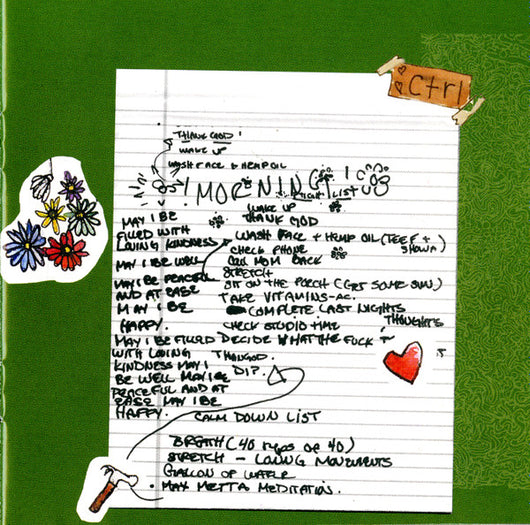 Ctrl
THANK GOD!
WAKE UP
WASH FACE + HEMP OIL
! MORNING!
LIST
WAKE UP
THANK GOD
WASH FACE + HEMP OIL (TEEF +
CHECK PHONE
CALL MOM BACK
STRETCH
SIT ON THE PORCH (GET SOME SUN)
TAKE VITAMINS - AC.
COMPLETE LAST NIGHTS
THOUGHTS
CHECK STUDIO TIME
DECIDE WHAT THE FUCK
DIP.
MAY I BE
FILLED WITH
LOVING KINDNESS
MAY I BE WELL
MAY I BE PEACEFUL
AND AT EASE
MAY I BE
HAPPY.
MAY I BE FILLED
WITH LOVING
KINDNESS MAY I
BE WELL MAY I BE
PEACEFUL AND AT
EASE MAY I BE
HAPPY.
CALM DOWN LIST
BREATH (40 reps of 40)
STRETCH - LOVING MOVEMENTS
GALLON OF WATER
• MAX METTA MEDITATION.